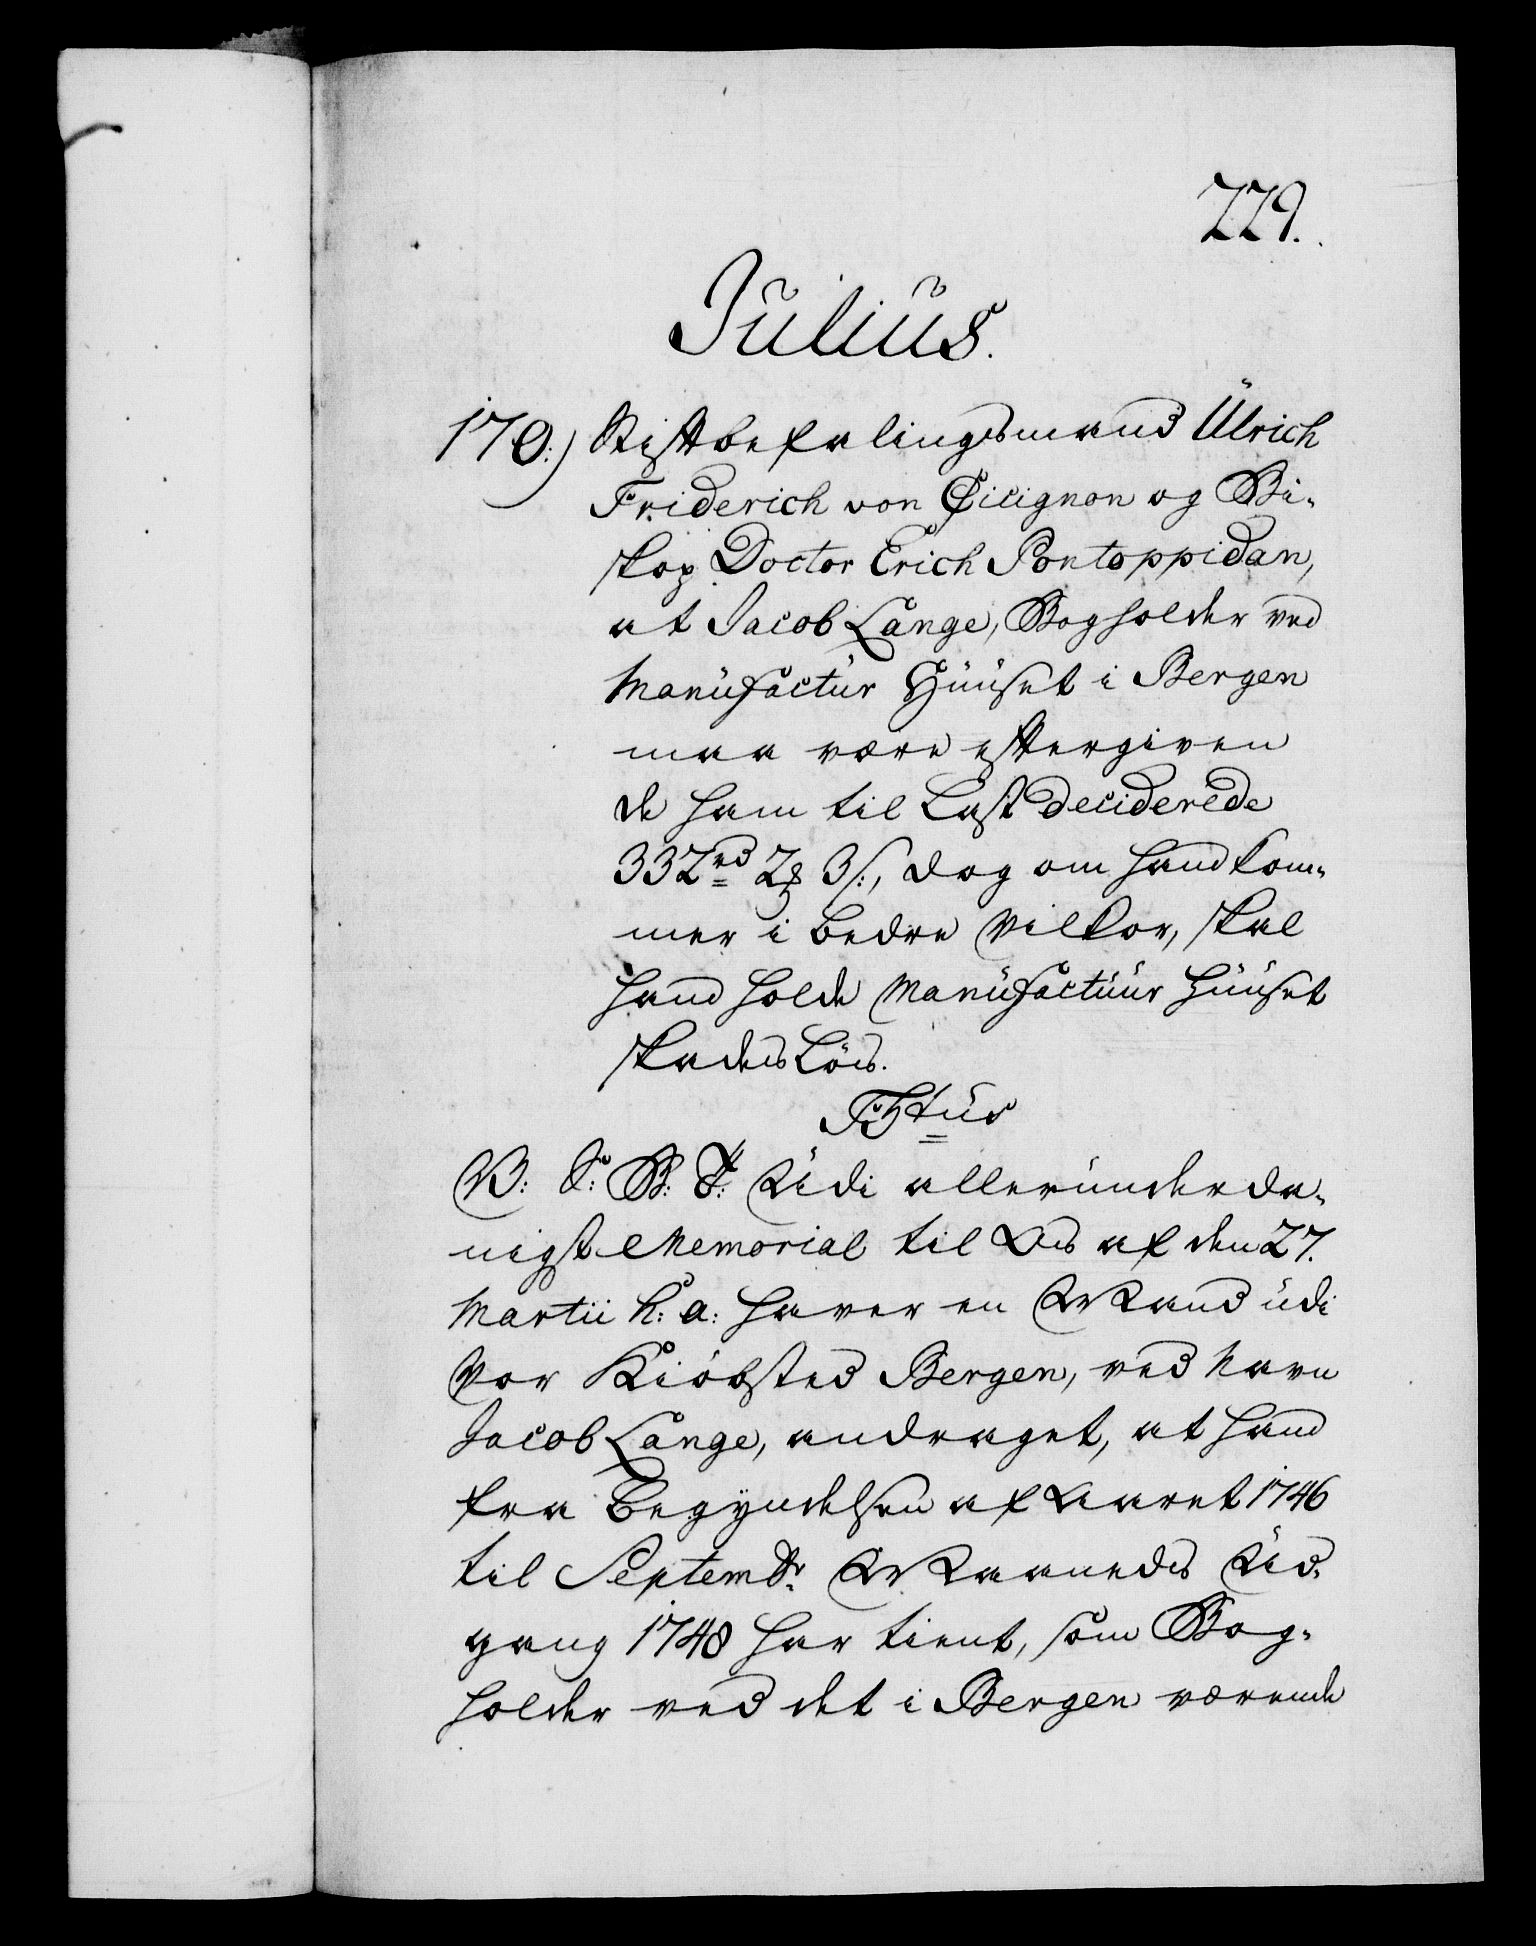 229.
Julius.
170.) Stiftbefalingsmand Ulrich
Friderich von Cicignon og Bi-
skop Doctor Erich Pontoppidan,
at Jacob Lange, Bogholder ved
Manufactur Huuset i Bergen
maa være eftergiven
de ham til Last deciderede
332 rd 2 ₰ 3 s:, dog om hand kom-
mer i bedre Vilkor, skal
hand holde Manufactuur Huuset
skadesløs.
V: S: B: T: Udi allerunderda-
nigst Memorial til Os af den 27.
Martii h: a: haver en Mand udi
Vor Kiöbsted Bergen, ved Navn
Jacob Lange, andraget, at hand
fra Begyndelsen af Aaret 1746
til Septembr: Maaneds Ud-
gang 1748 har tient, som Bog-
holder ved det i Bergen værende